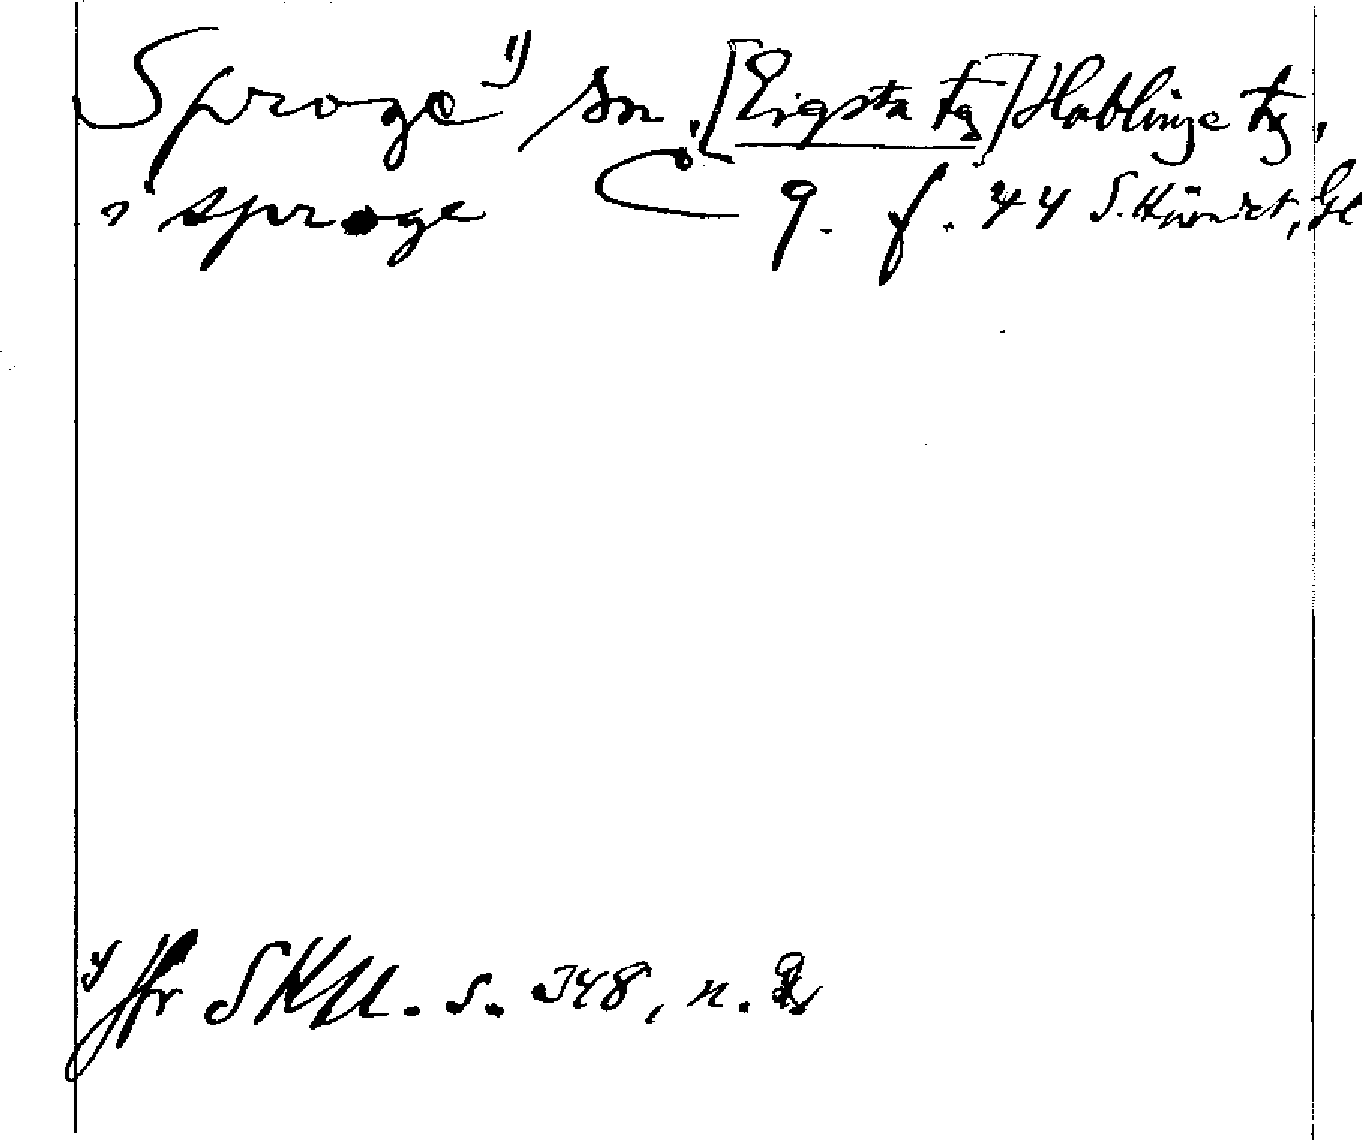 Sproge ¹) sn, [Eigsta tg] Hablinge tg,
i sproge 9. f. 44 S. Härdet, Gl
¹) Jfr SKU. s. 348, n.